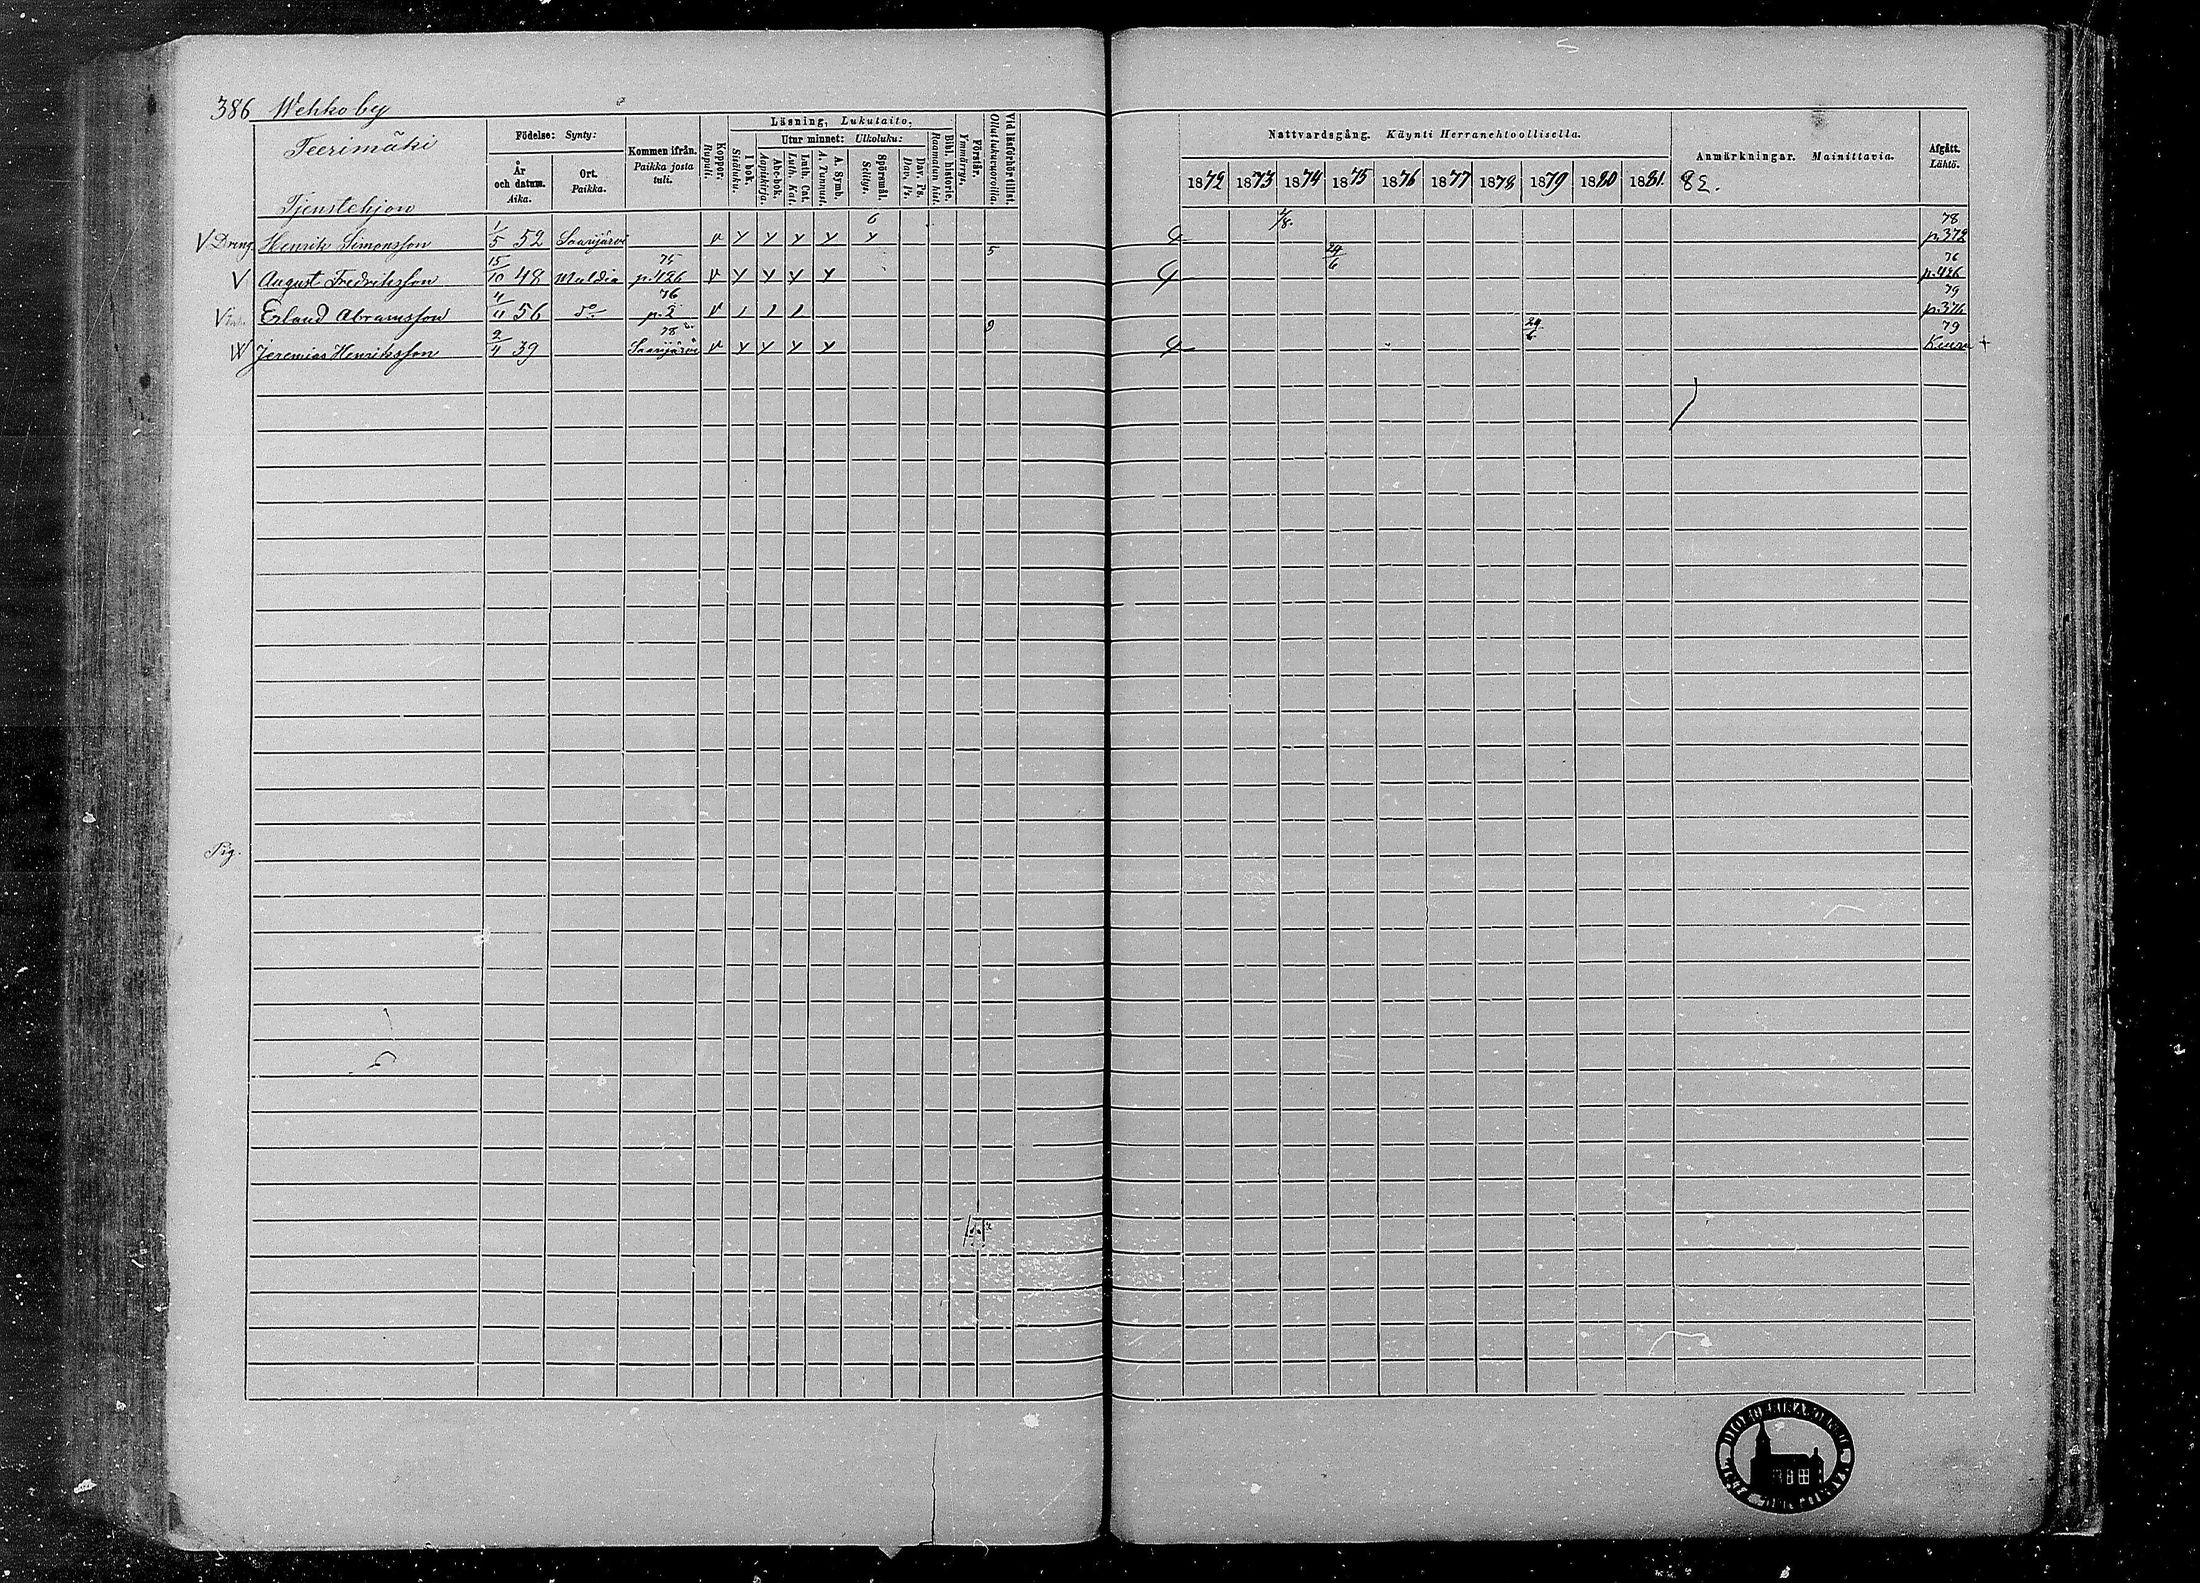 386 Wehkoby
Teerimäki
Tjenstehjon
Födelse: Synty:
År och datum. Aika.
Ort. Paikka.
Kommen ifrån. Paikka josta tuli.
Koppor. Rupuli.
Läsning, Lukutaito.
I bok. Sisäluku.
Utur minnet: Ulkoluku:
Abc-bok. Aapiskirja.
Luth. Cat. Luth. Kat.
A. Symb. A. Tunnust.
Spörsmål. Selitys.
Dav. Ps. Dav. Ps.
Bibl. historie. Raamatun hist.
Förstår. Ymmärrys.
Vid läsförhör tillst. Ollut lukuvuoroilla.
Nattvardsgång. Käynti Herranehtoollisella.
1872 1873 1874 1875 1876 1877 1878 1879 1880 1881
Anmärkningar. Mainittavia.
82.
Afgått. Lähtö.
V Dreng Henrik Simonsson 1/5 52 Saarijärvi v y y y y 6 y /8. 78 p.372
V August Fredriksson 15/10 48 Muldia 75 p.426 v y y y y 5 24/6 76 p.426
V Erland Abramsson 4/11 56 do 76 p.2 v 1 1 1 79 p.376
W Jeremias Henriksson 2/4 39 78 Saarijärvi v y y y y 9 29/6 79 Keuru +
Pig.